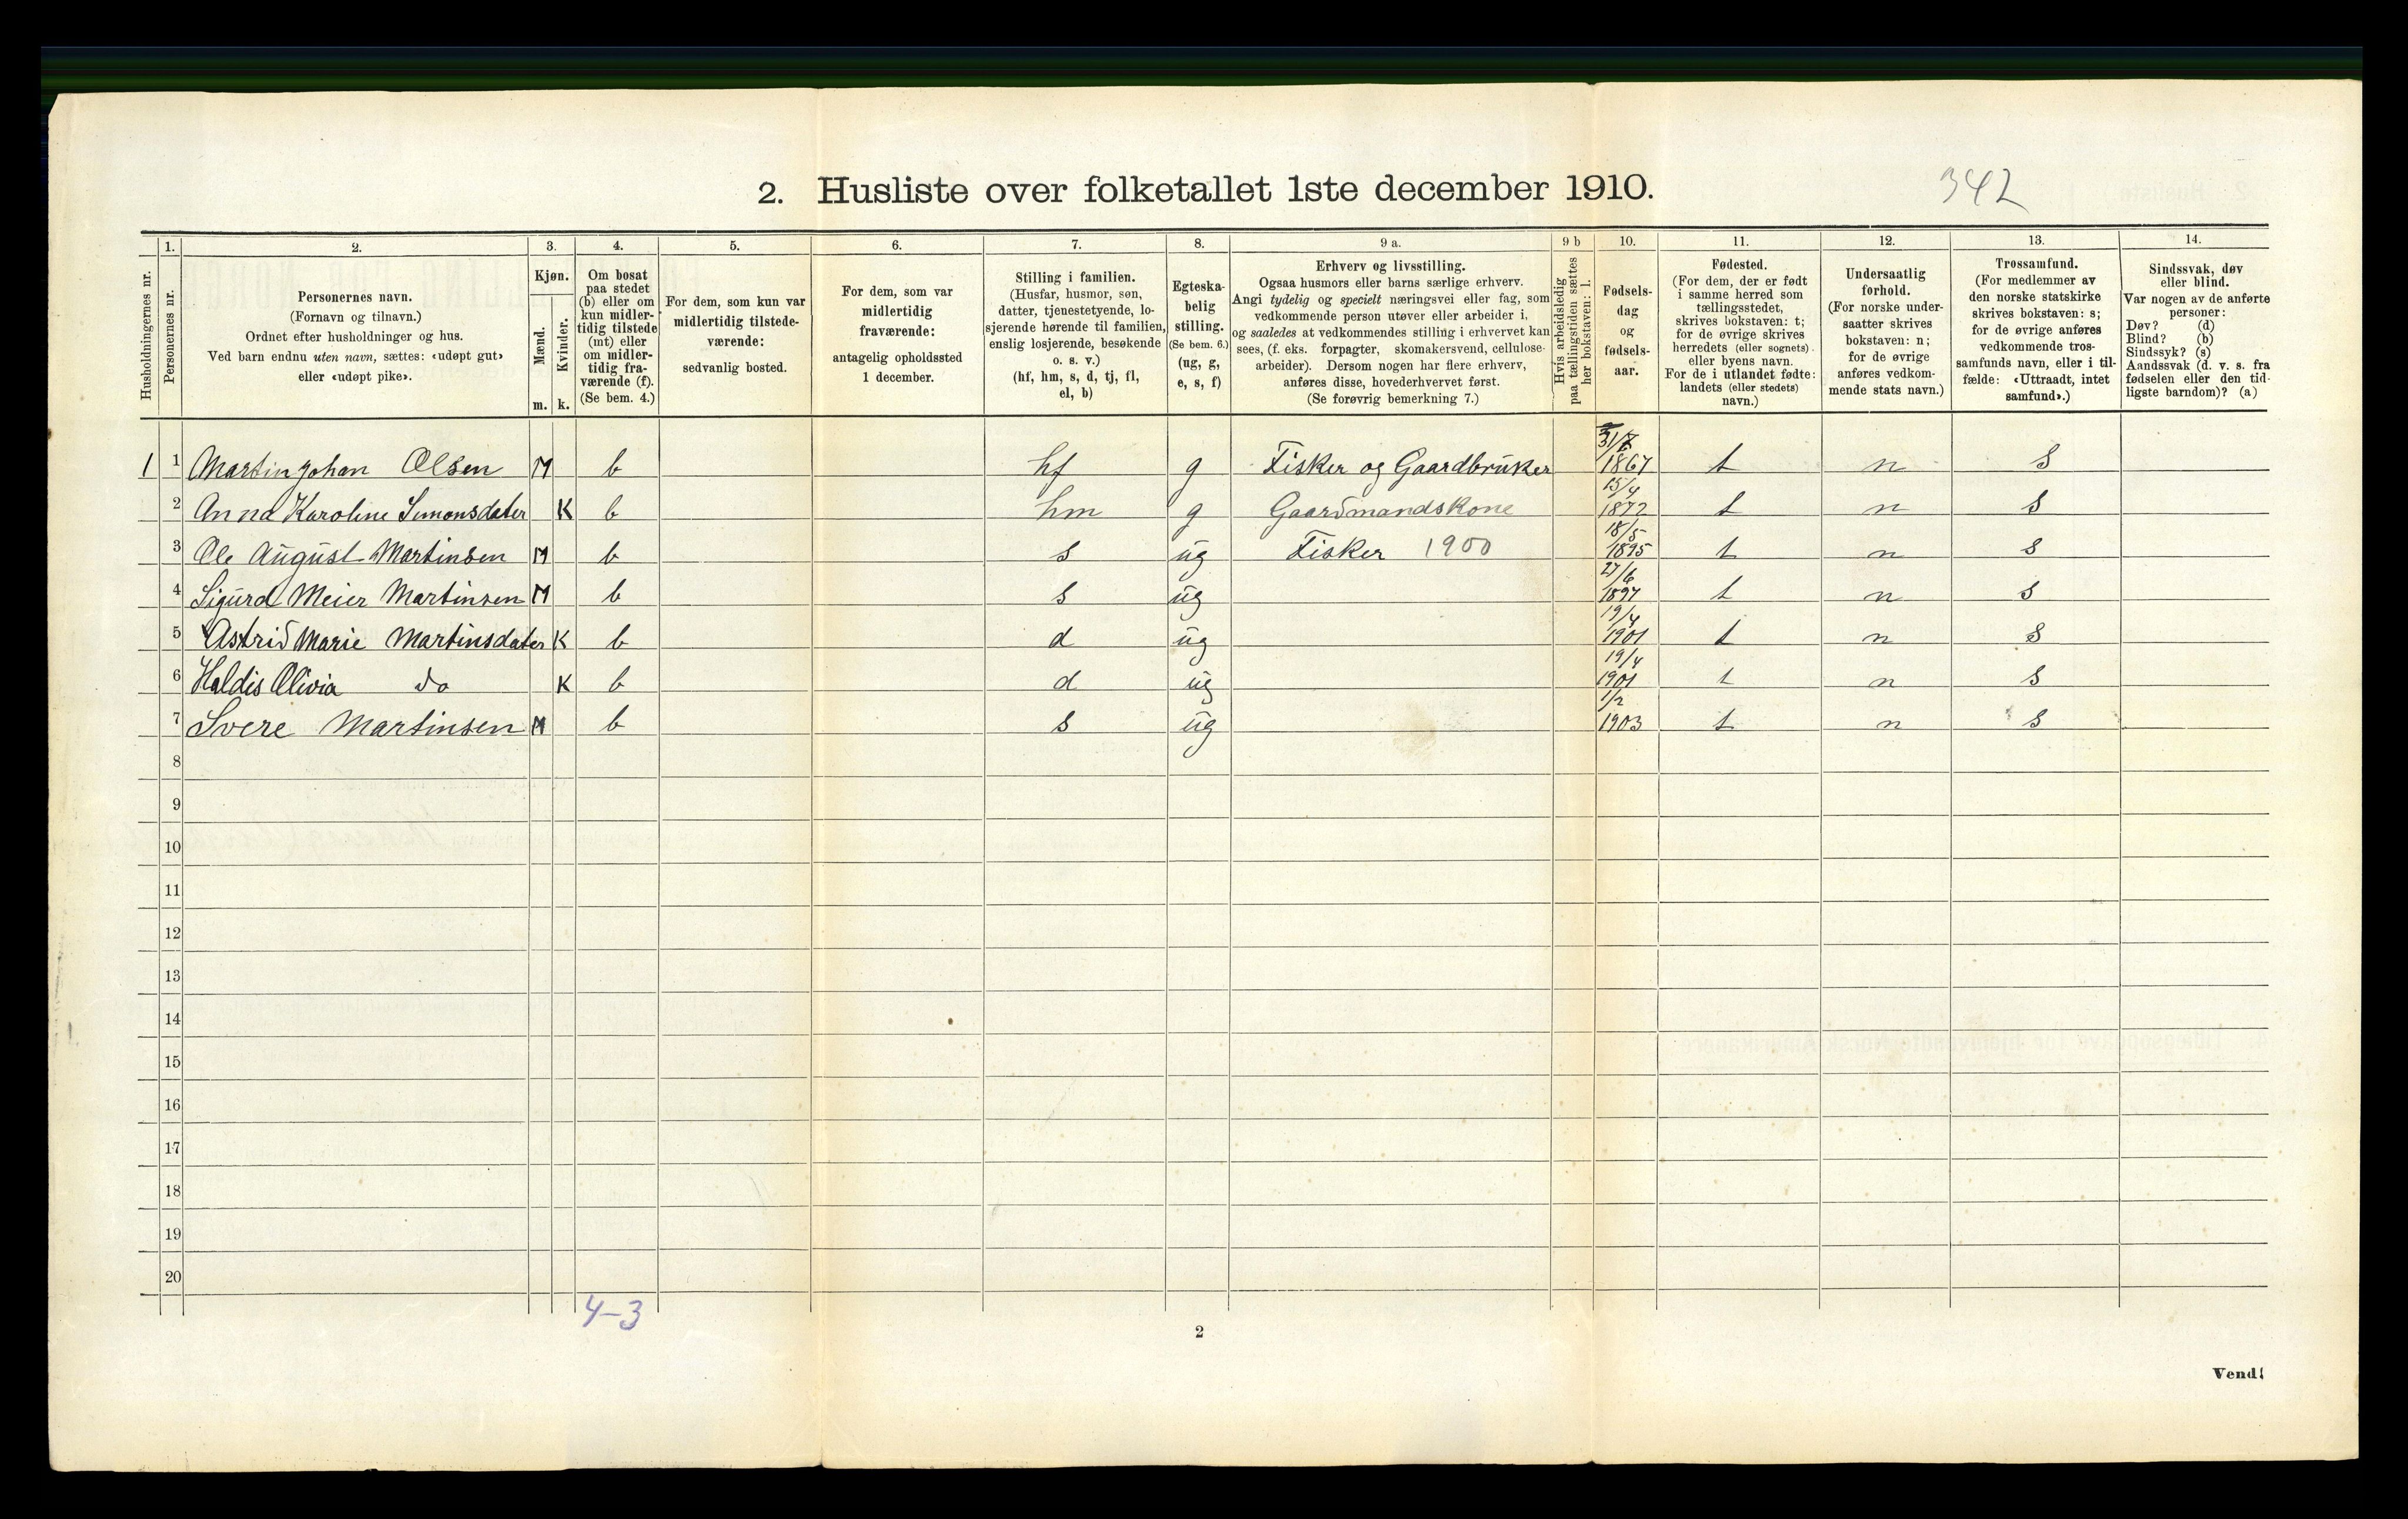 342
2. Husliste over folketallet 1ste december 1910.
Husholdningernes nr.
1.
Personernes nr.
2.
Personernes navn.
(Fornavn og tilnavn.)
Ordnet efter husholdninger og hus.
Ved barn endnu uten navn, sættes: «udøpt gut»
eller «udøpt pike».
3.
Kjøn.
Mænd.
Kvinder.
m. k.
4.
Om bosat
paa stedet
(b) eller om
kun midler-
tidig tilstede
(mt) eller
om midler-
tidig fra-
værende (f).
(Se bem. 4.)
5.
For dem, som kun var
midlertidig tilstede-
værende:
sedvanlig bosted.
6.
For dem, som var
midlertidig
fraværende:
antagelig opholdssted
1 december.
7.
Stilling i familien.
(Husfar, husmor, søn,
datter, tjenestetyende, lo-
sjerende hørende til familien,
enslig losjerende, besøkende
o. s. v.)
(hf, hm, s, d, tj, fl,
el, b)
8.
Egteska-
belig
stilling.
(Se bem. 6.)
(ug, g,
e, s, f)
9 a.
Erhverv og livsstilling.
Ogsaa husmors eller barns særlige erhverv.
Angi tydelig og specielt næringsvei eller fag, som
vedkommende person utøver eller arbeider i,
og saaledes at vedkommendes stilling i erhvervet kan
sees, (f. eks. forpagter, skomakersvend, cellulose-
arbeider). Dersom nogen har flere erhverv,
anføres disse, hovederhvervet først.
(Se forøvrig bemerkning 7.)
9 b
Hvis arbeidsledig
paa tællingstiden sættes
her bokstaven: l.
10.
Fødsels-
dag
og
fødsels-
aar.
11.
Fødested.
(For dem, der er født
i samme herred som
tællingsstedet,
skrives bokstaven: t;
for de øvrige skrives
herredets (eller sognets)
eller byens navn.
For de i utlandet fødte:
landets (eller stedets)
navn.)
12.
Undersaatlig
forhold.
(For norske under-
saatter skrives
bokstaven: n;
for de øvrige
anføres vedkom-
mende stats navn.)
13.
Trossamfund.
(For medlemmer av
den norske statskirke
skrives bokstaven: s;
for de øvrige anføres
vedkommende tros-
samfunds navn, eller i til-
fælde: «Uttraadt, intet
samfund».)
14.
Sindssvak, døv
eller blind.
Var nogen av de anførte
personer:
Døv? (d)
Blind? (b)
Sindssyk? (s)
Aandssvak (d. v. s. fra
fødselen eller den tid-
ligste barndom)? (a)
1 1 Martin Johan Olsen M b hf g Fisker og Gaardbruker 31/7 1867 t n S
2 Anna Karoline Simonsdater K b hm g Gaardmandskone 15/4 1872 t n S
3 Ole August Martinsen M b s ug Fisker 1900 18/5 1895 t n S
4 Sigurd Meier Martinsen M b s ug 27/6 1897 t n S
5 Astrid Marie Martinsdater K b d ug 19/4 1901 t n S
6 Haldis Olivia do K b d ug 19/4 1901 t n S
7 Svere Martinsen M b s ug 1/2 1903 t n S
8
9
10
11
12
13
14
15
16
17
18
19
20
4-3
2
Vend!